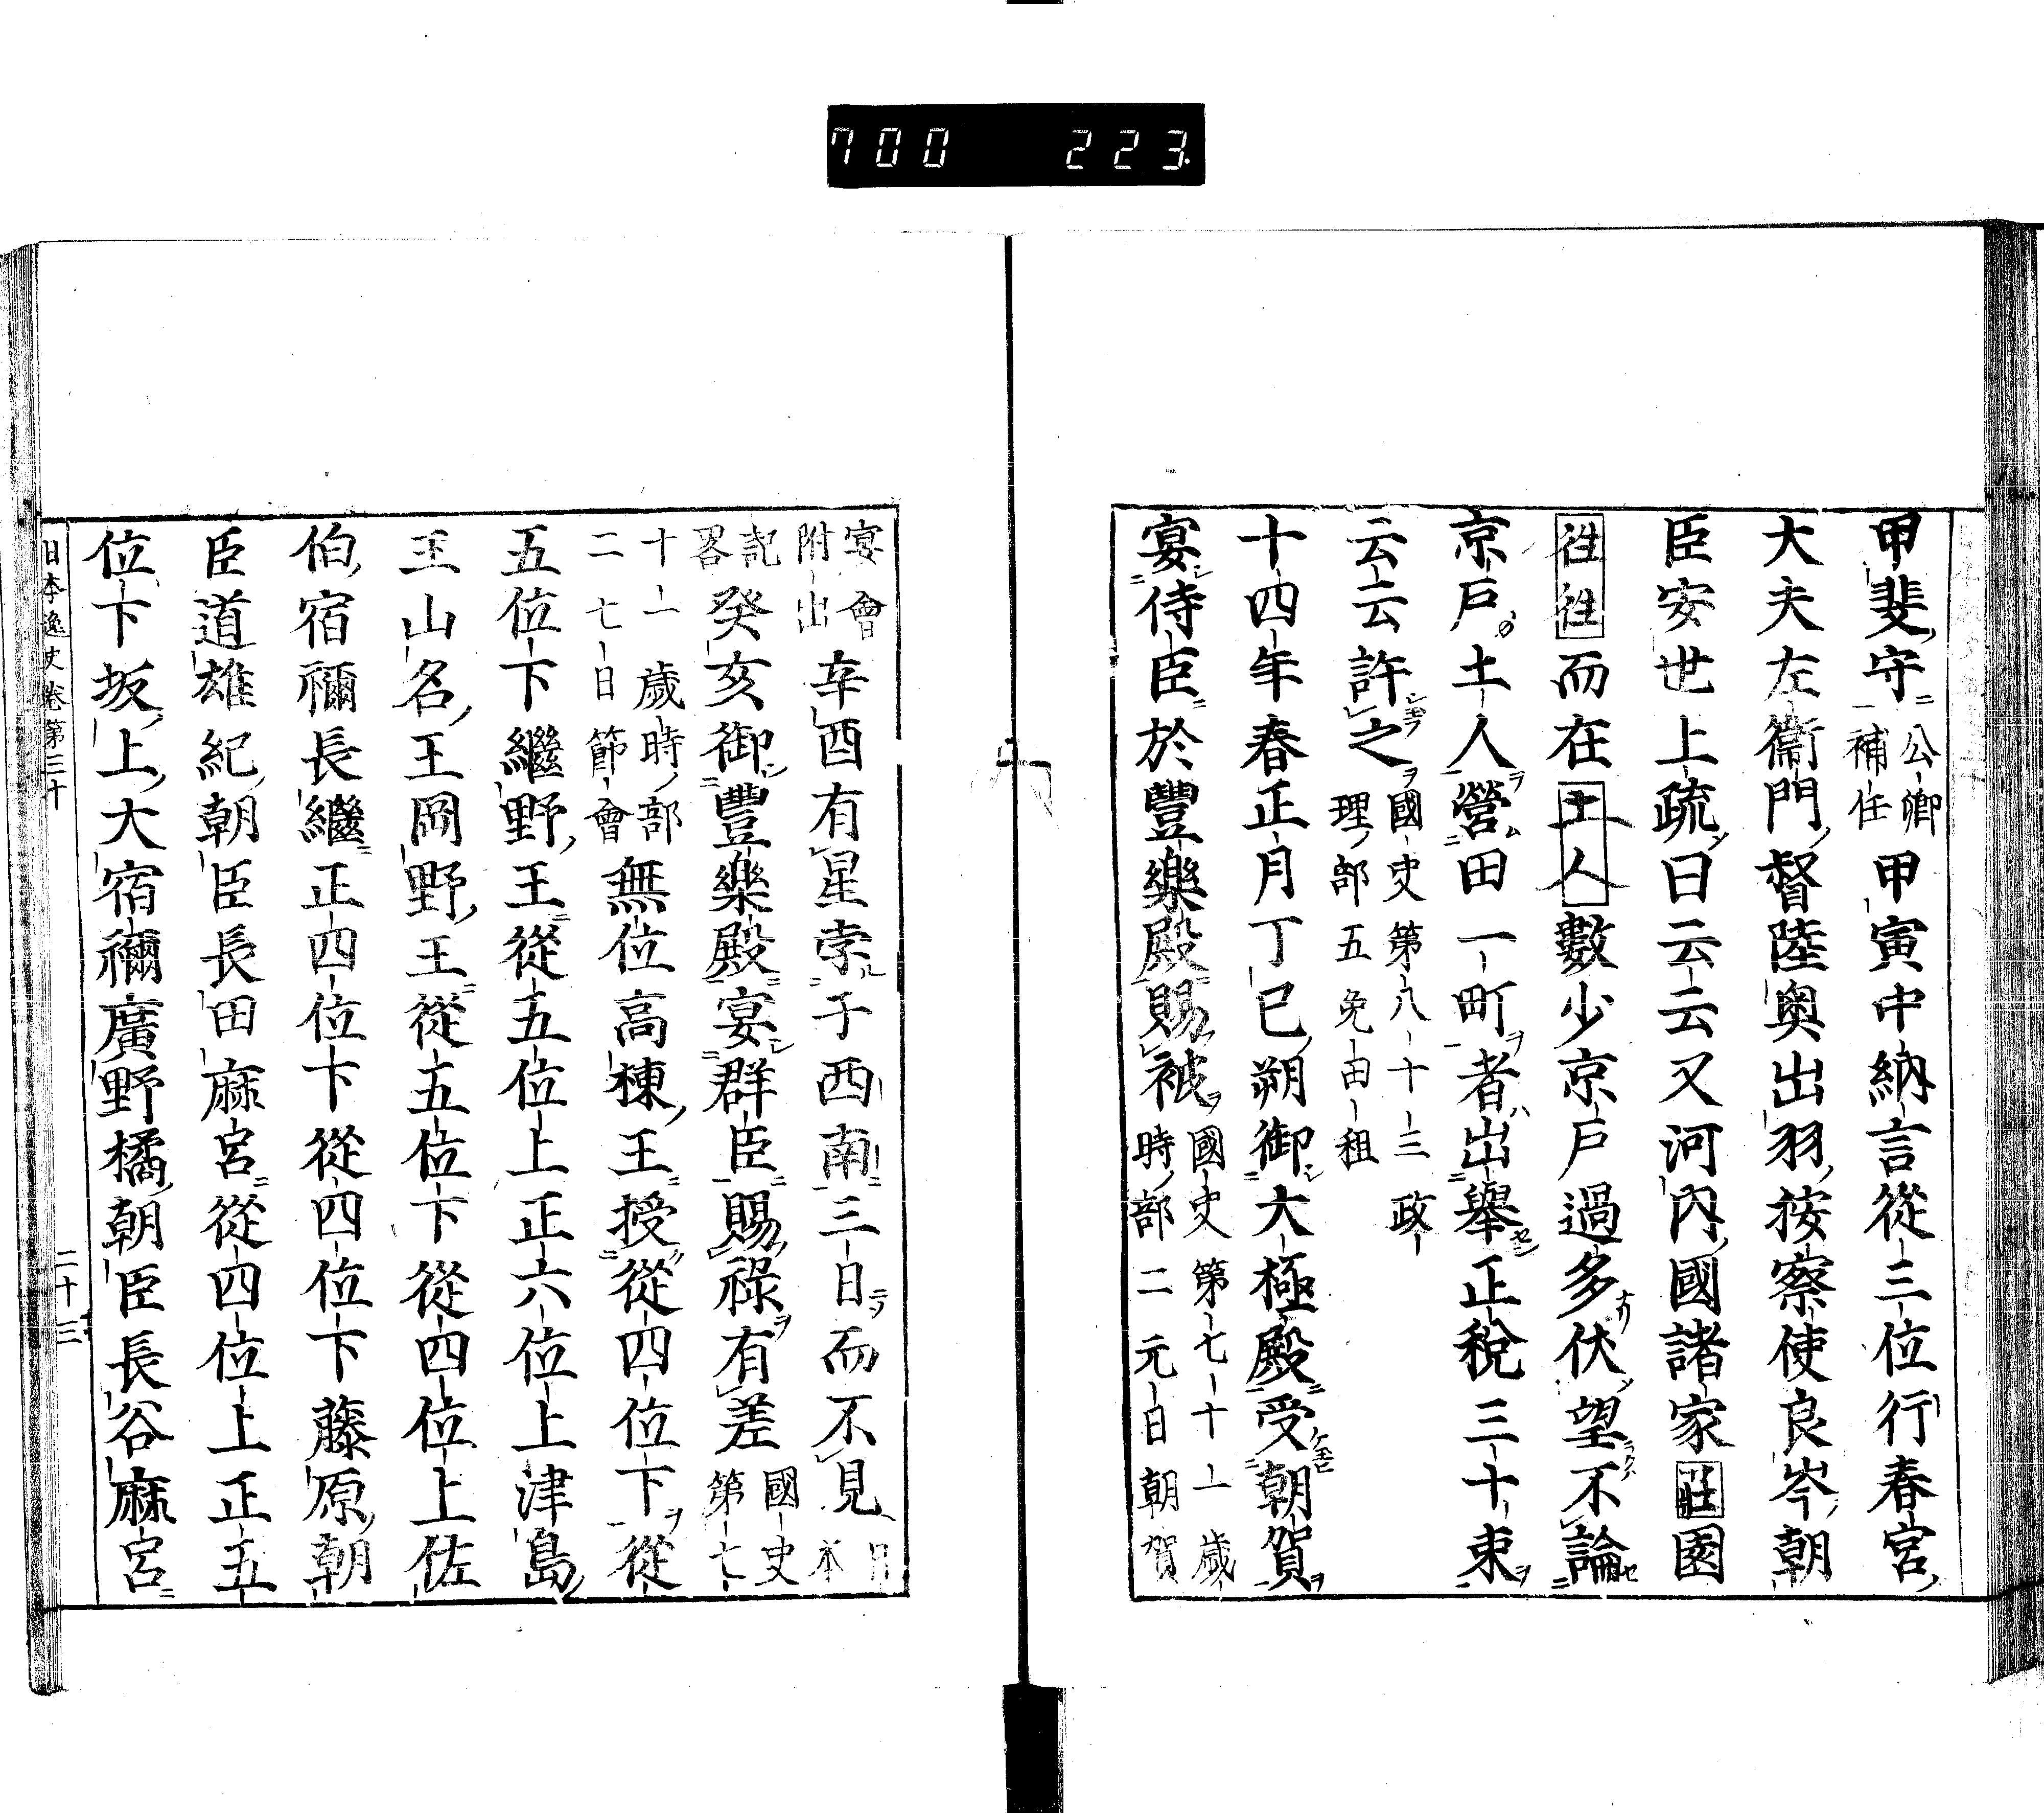 700 223
甲斐守公卿補任甲寅中納言從三位行春宮
大夫左衞門督陸奥出羽按察使良岑朝
臣安世上疏曰云云又河內國諸家莊園
往往而在土人數少京戶過多伏望不論
京戶土人營田一町者出舉正稅三十束
云云許之國史第八十三政理部五免田租
十四年春正月丁巳朔御大極殿受朝賀
宴侍臣於豐樂殿賜被國史第七十一歲時部二元日朝賀
宴會附出辛酉有星孛于西南三日而不見日本
記畧癸亥御豐樂殿宴群臣賜祿有差國史第七
十一歲時部二七日節會無位高棟王授從四位下從
五位下繼野王從五位上正六位上津島
王山名王岡野王從五位下從四位上佐
伯宿禰長繼正四位下從四位下藤原朝
臣道雄紀朝臣長田麻呂從四位上正五
位下坂上大宿禰廣野橘朝臣長谷麻呂
日本逸史卷第三十 二十三